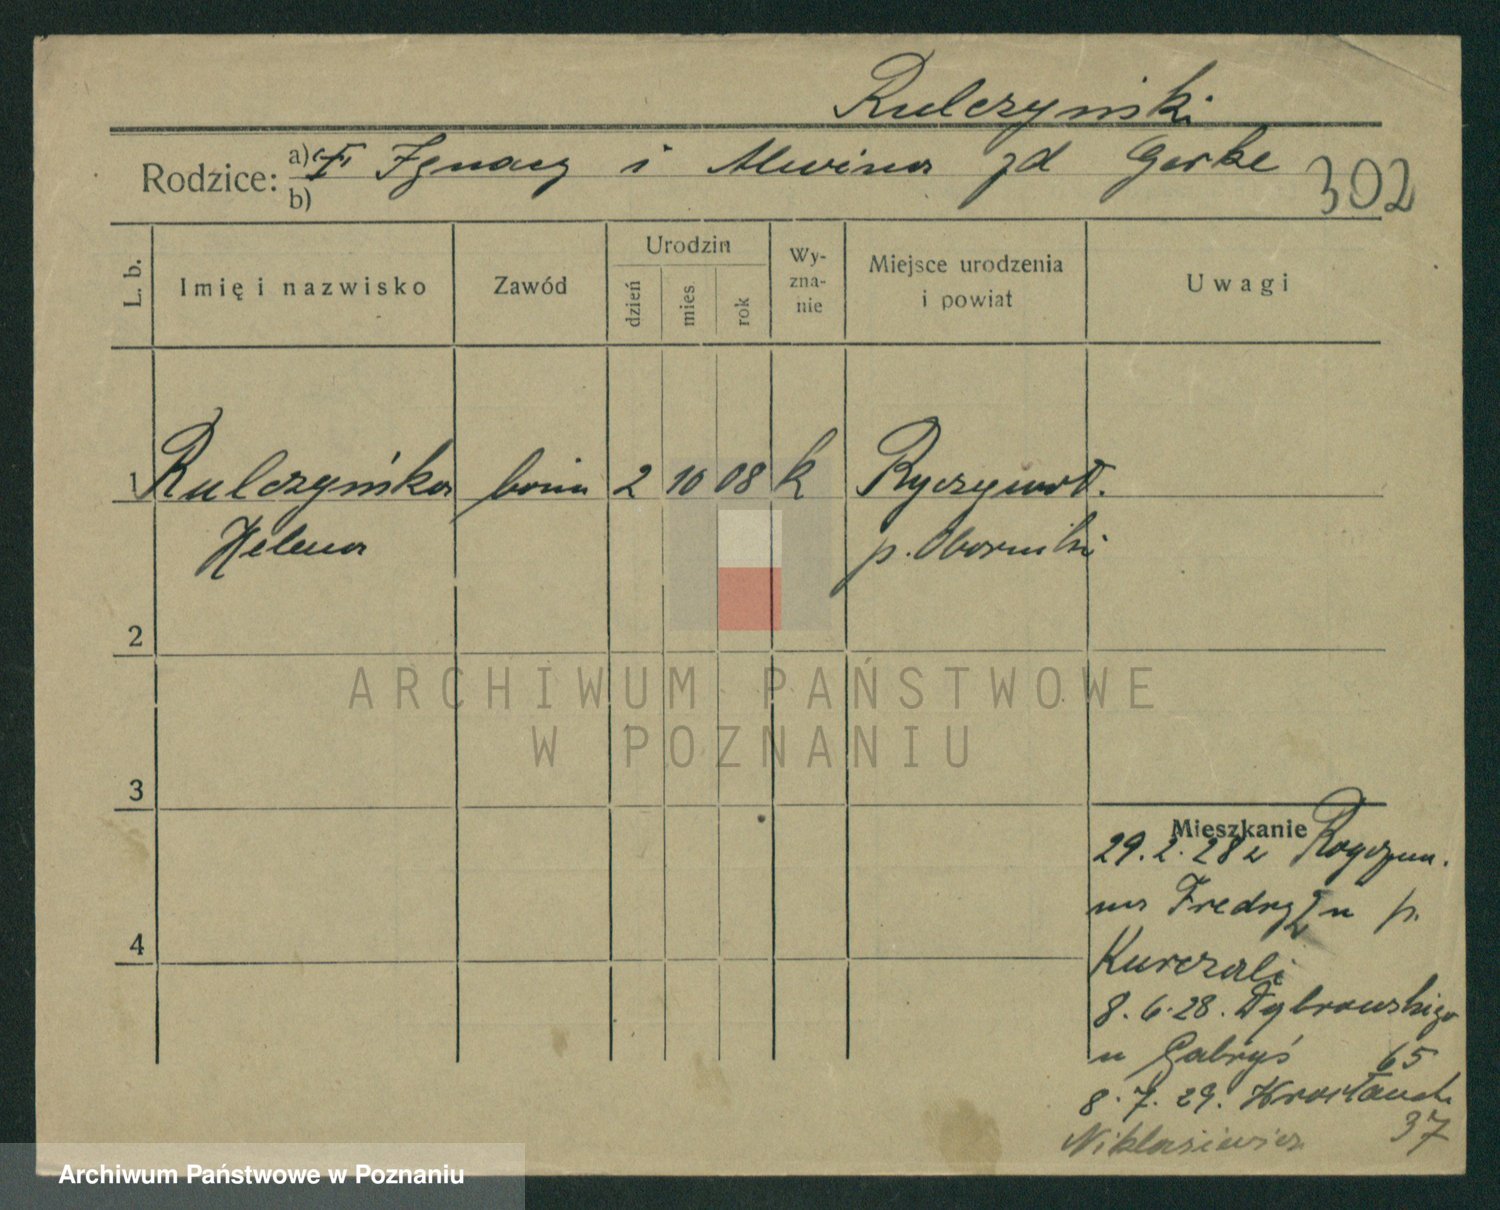 Rulczyński
Rodzice: a) Ignacy i Alwina zd Gerke
b)
302
L. b. Imię i nazwisko Zawód Urodzin dzień mies rok Wy-zna-nie Miejsce urodzenia i powiat Uwagi
1 Rulczyńska bona 2 10 08 k Ryczywół.
Helena p. Oborniki
2
ARCHIWUM PAŃSTWOWE
W POZNANIU
3
Mieszkanie
29.2.28 z Ryczyw.
na Fredry 2 u p.
Kurczali
8.6.28. Dąbrowskiego
u Gabryś 65
8.7.29. Wrocławska
Niklasiewicz 37
4
Archiwum Państwowe w Poznaniu